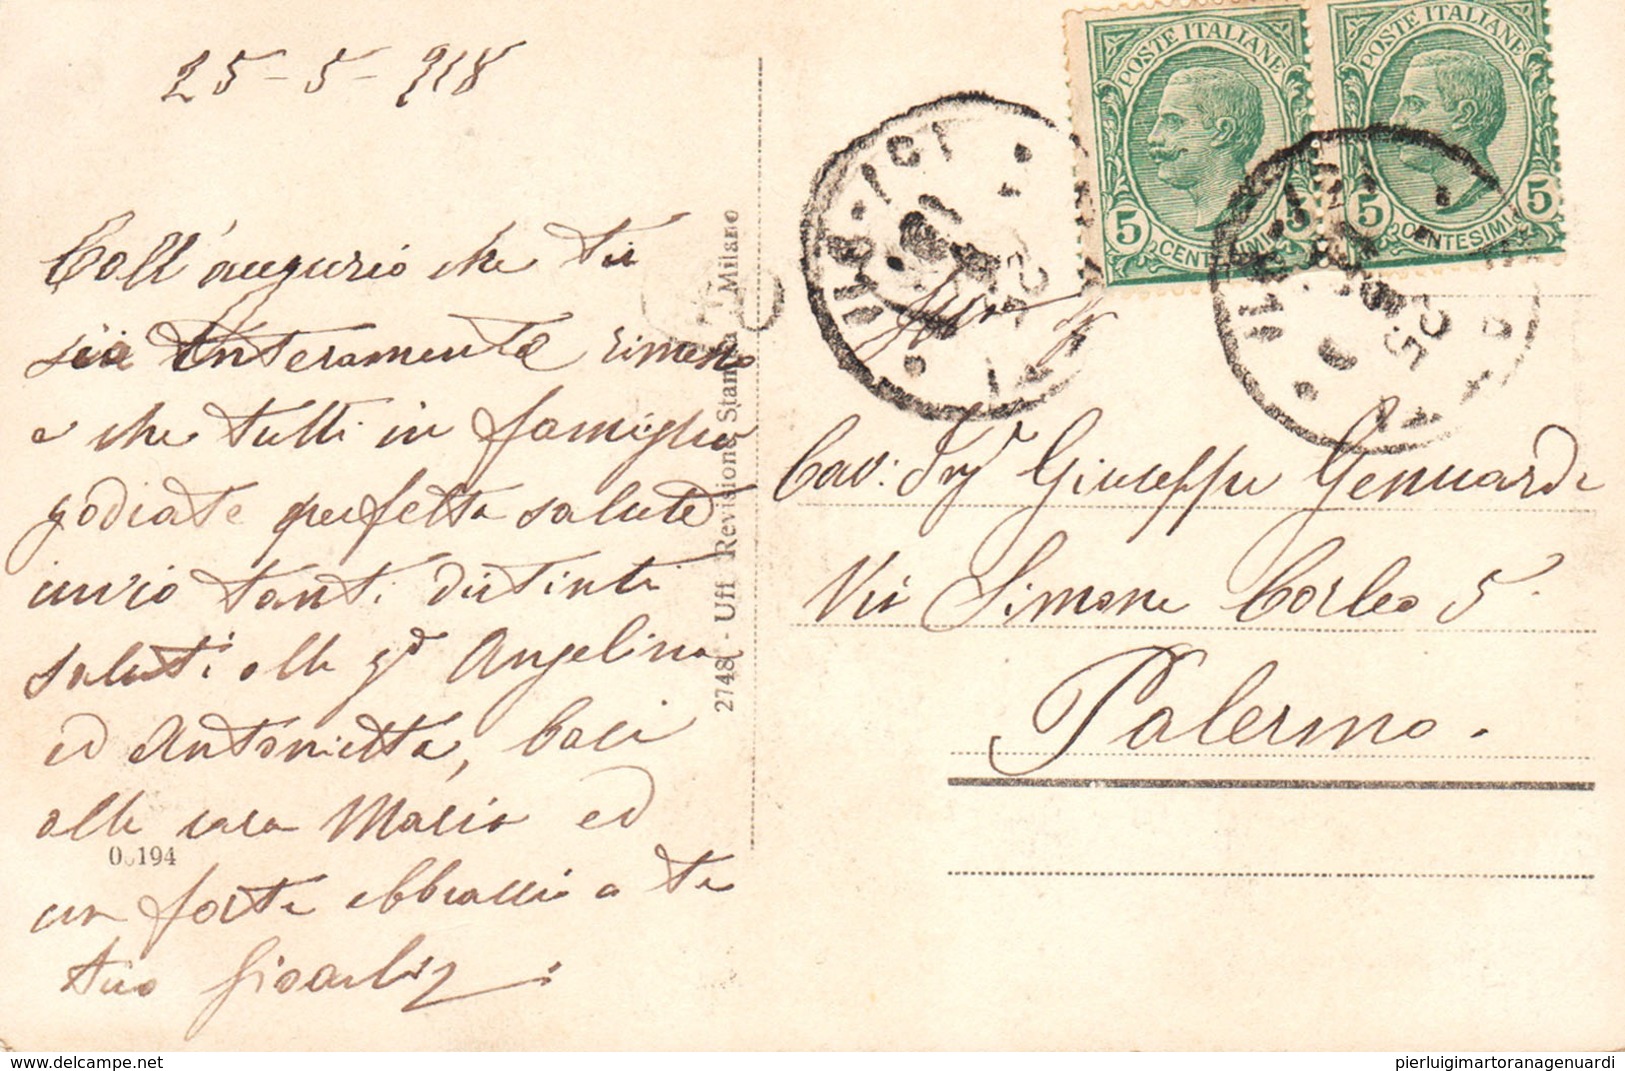 25-5-918
Coll'augurio che tu
sia interamente rimesso
e che tutti in famiglia
godiate perfetta salute
invio tanti distinti
saluti alla Angelina
ed Antonietta, baci
alla cara Maria ed
un forte abbraccio a te
tuo
06194
2748 - Uff Revisione Stampa Milano
POSTE ITALIANE
5 CENTESIMI 5
POSTE ITALIANE
5 CENTESIMI 5
Cav: Ing Giuseppe Genuardi
Via Simone Corleo 5.
Palermo.
www.delcampe.net
pierluigimartoranagenuardi